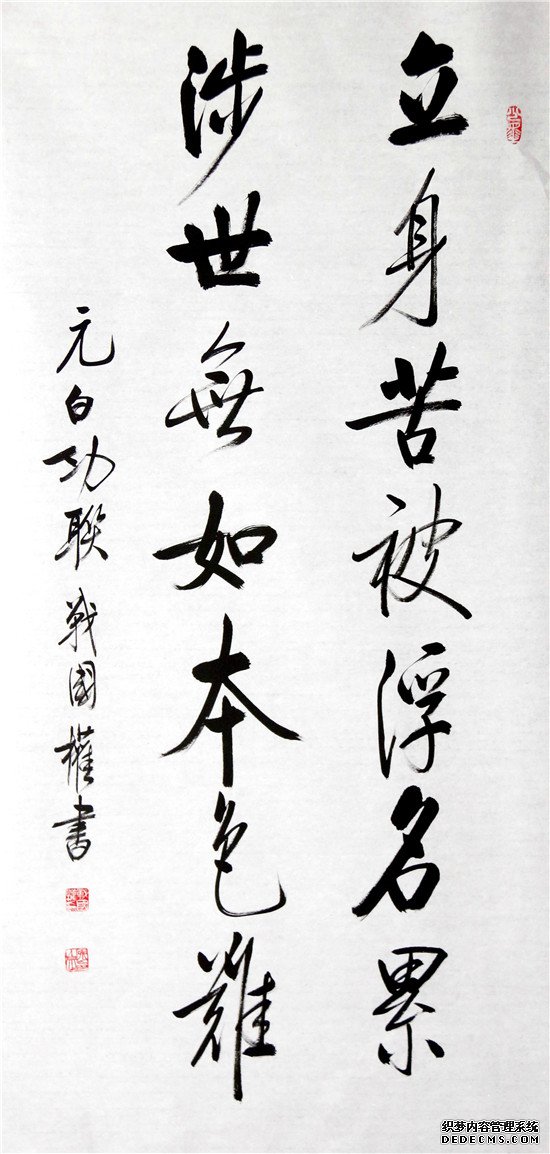 立身苦被浮名累
涉世無如本色難
元白功聯 戰國權書
织梦内容管理系统
DEDECMS.COM